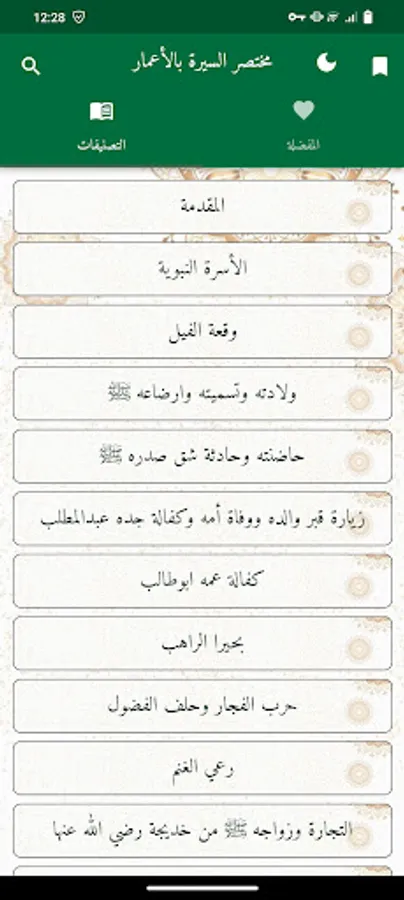 12:28
مختصر السيرة بالأعمار
المفضلة
التصنيفات
المقدمة
الأسرة النبوية
وقعة الفيل
ولادته وتسميته وارضاعه ﷺ
حاضنته وحادثة شق صدره ﷺ
زيارة قبر والده ووفاة أمه وكفالة جده عبدالمطلب
كفالة عمه ابوطالب
بحيرا الراهب
حرب الفجار وحلف الفضول
رعي الغنم
التجارة وزواجه ﷺ من خديجة رضي الله عنها